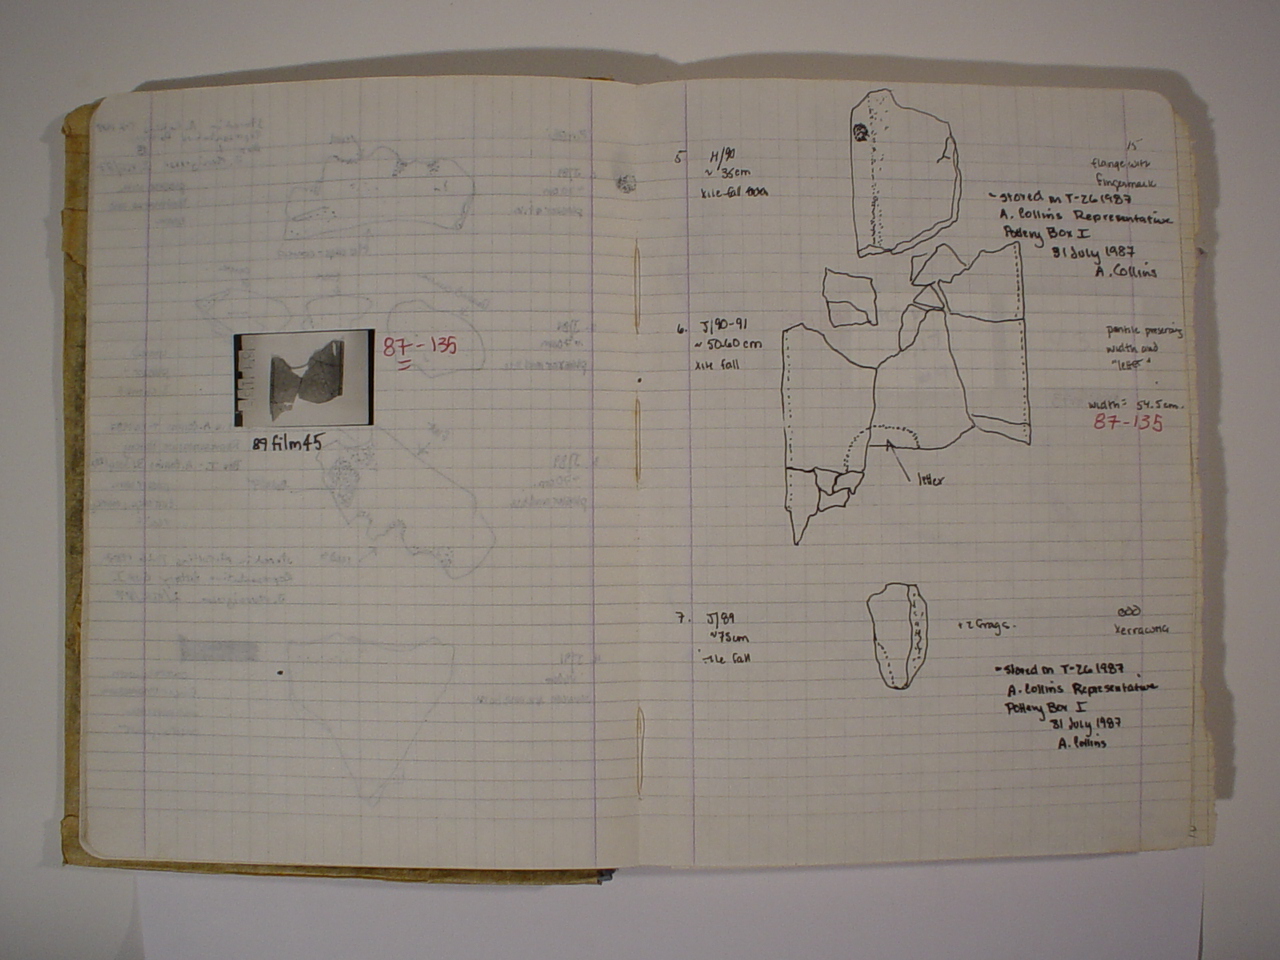 87-135
89 film 45
15
5. H/90
~ 35cm
tile fall
flange with
fingermark
- stored on T-26 1987
A. Collins Representative
Pottery Box I
31 July 1987
A. Collins
6. J/90-91
~ 50-60 cm
tile fall
pantile preserving
width and
"letter"
width= 54.5cm.
87-135
letter
7. J/89
~75cm
tile fall
+2 frags.
terracotta
- stored on T-26 1987
A. Collins Representative
Pottery Box I
31 July 1987
A. Collins